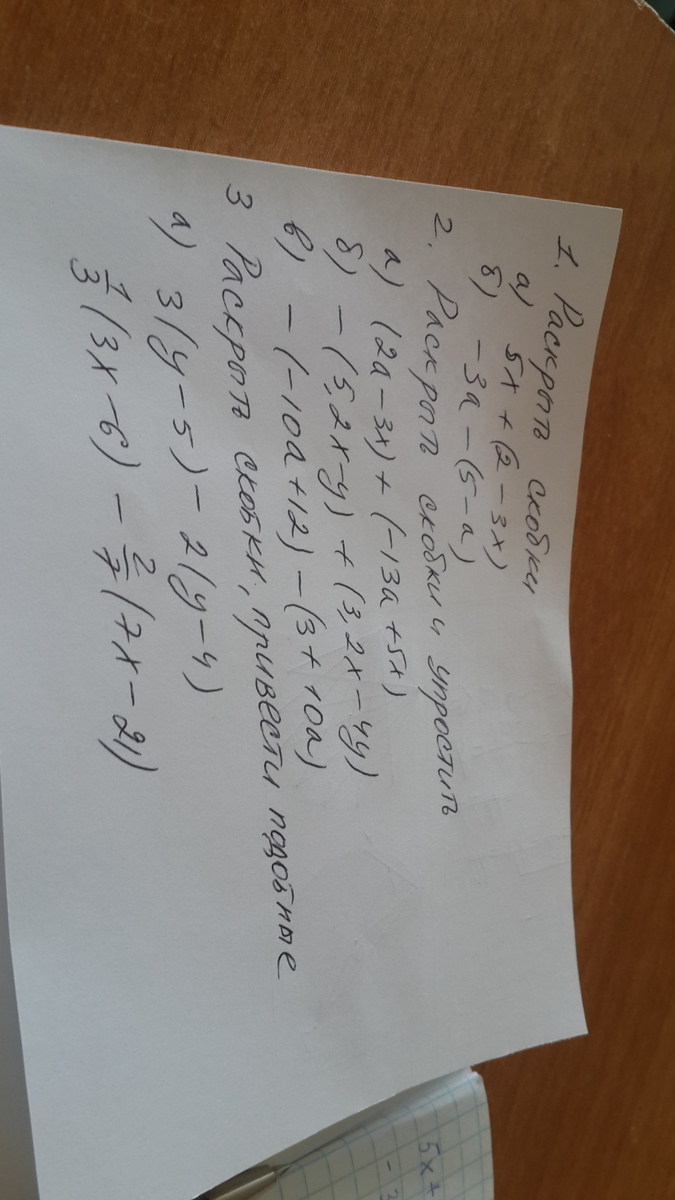 1. Раскрыть скобки
а) 5x + (2 - 3x)
б) -3a - (5 - a)
2. Раскрыть скобки и упростить
а) (2a - 3x) + (-13a + 5x)
б) - (5,2x - y) + (3,2x - 4y)
в) - (-10a + 12) - (3 + 10a)
3 Раскрыть скобки, привести подобные
а) 3(y - 5) - 2(y - 4)
1/3 (3x - 6) - 2/7 (7x - 21)
5x +